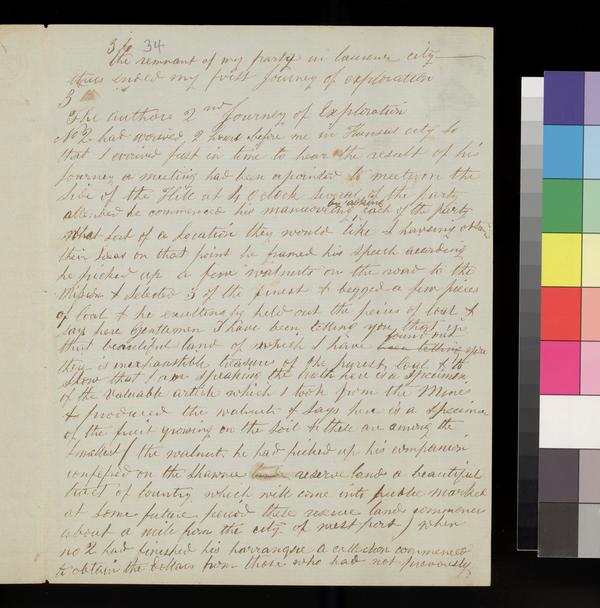 36 34
the remnant of my party in Caunser city
thus ended my first Journey of exploration
3
The authors 2nd Journey of Exploration
No 2 had arrived 2 hours before me in Kansas city so
that I arrived just in time to hear the result of his
Journey a meeting had been apointed to meet on the
side of the Hill at 4 O clock several of the party
attended he commenced his manuevering by asking each of the party
What sort of a Location they would like & haveing obtain
their Ideas on that point he framed his speech according
he picked up a few walnuts on the road to the
Mission & selected 3 of the finest & begged a few pieces
of Coal & he exultingly held out the peices of Coal &
says here Gentlemen I have been telling you that in
that beautiful land of which I have been telling found out
they is inexhaustible treasures of the purest Coal & to
show that I am speaking the truth here is a specimen
of the valuable article which I took from the Mine
& produced the walnuts & says here is a specimen
of the fruit growing on the soil & these are among the
smallest / the walnuts he had picked up his companion
confessed on the Shawnee reserve lands a beautiful
tract of Country which will come into public market
at some future period these reserve lands commences
about a mile from the city of west port ) when
no 2 had finished his harrangue a collection commenced
to obtain the dollars from those who had not previously